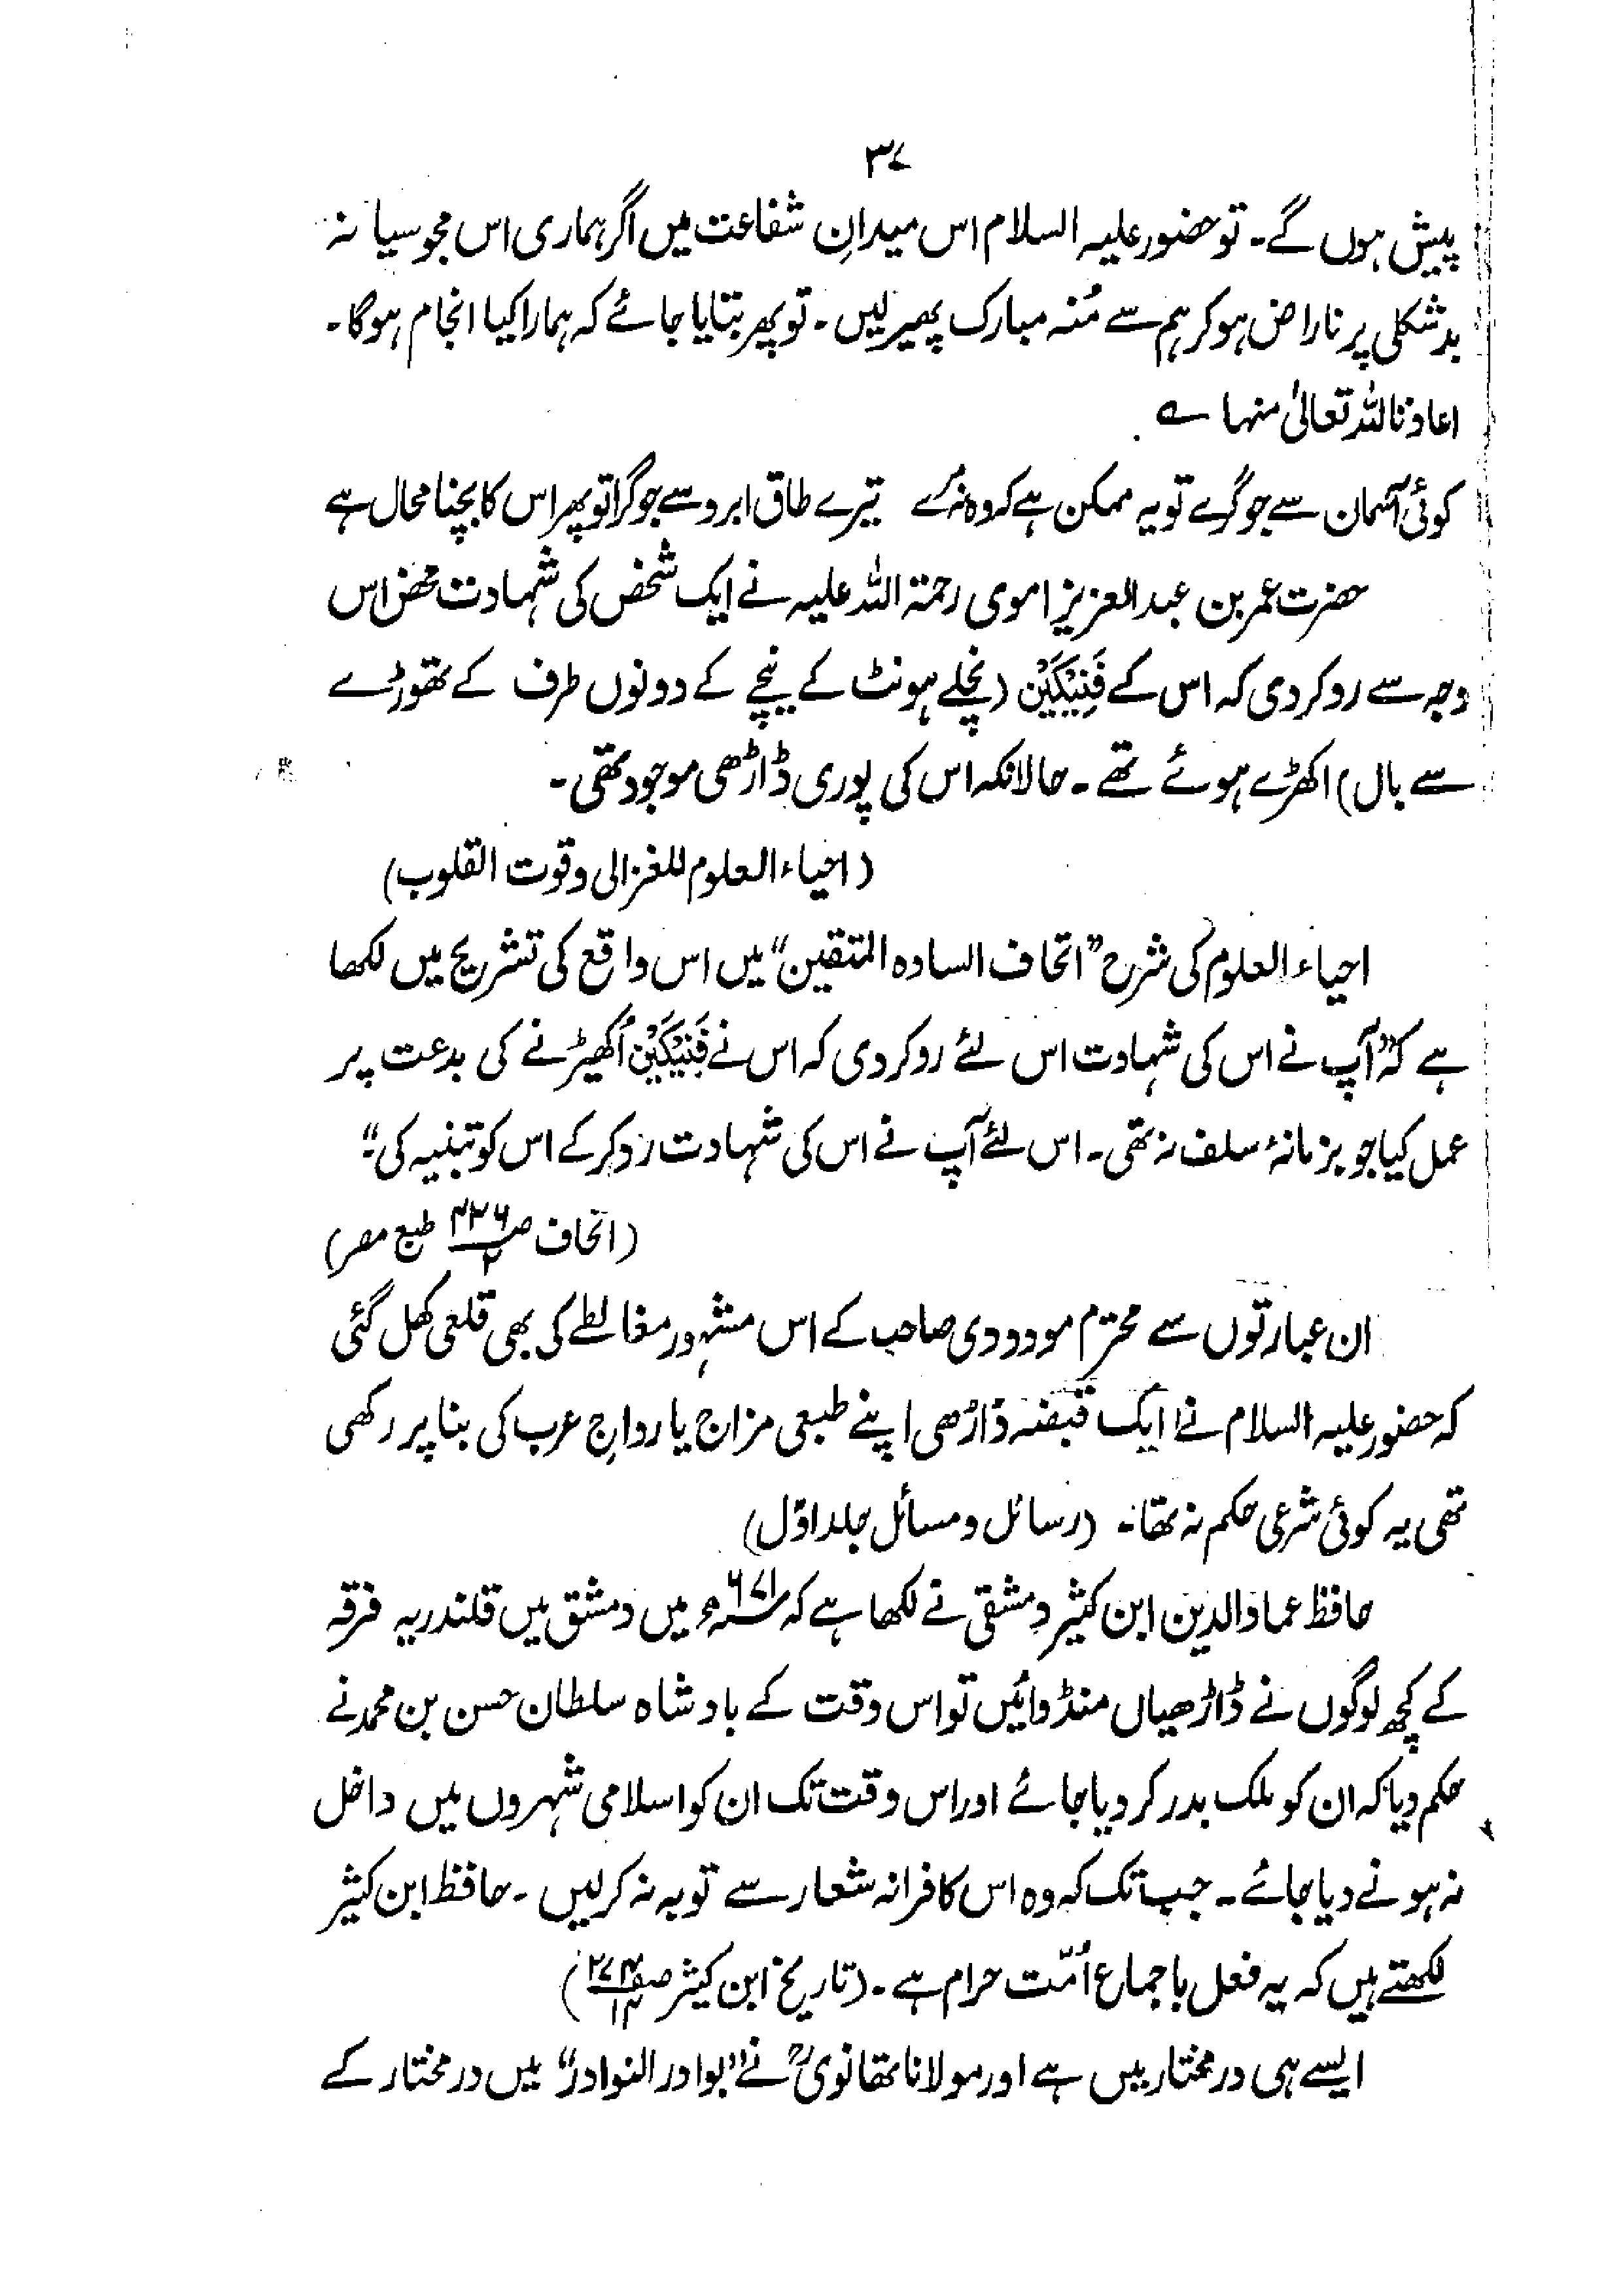 ۳۷
پیش ہوں گے۔ تو حضور علیہ السلام اس میدانِ شفاعت میں اگر ہماری اس مجوسیانہ
بدشکلی پر ناراض ہوکر ہم سے مُنہ مبارک پھیر لیں۔ تو پھر بتایا جائے کہ ہمارا کیا انجام ہوگا۔
اعاذنا اللہ تعالیٰ منہا ؎
کوئی آسمان سے جو گرے تو یہ ممکن ہے کہ وہ نہ مرے تیرے طاق ابرو سے جو گرا تو پھر اس کا بچنا محال ہے
حضرت عمر بن عبد العزیز اموی رحمۃ اللہ علیہ نے ایک شخص کی شہادت محض اس
وجہ سے رد کردی کہ اس کے فَنِیْکَیْن (نچلے ہونٹ کے نیچے کے دونوں طرف کے تھوڑے
سے بال) اکھڑے ہوئے تھے۔ حالانکہ اس کی پوری ڈاڑھی موجود تھی۔
(احیاء العلوم للغزالی و قوت القلوب)
احیاء العلوم کی شرح "اتحاف السادہ المتقین" میں اس واقع کی تشریح میں لکھا
ہے کہ "آپ نے اس کی شہادت اس لئے رد کردی کہ اس نے فَنِیْکَیْن اُکھیڑنے کی بدعت پر
عمل کیا جو بزمانۂ سلف نہ تھی۔ اس لئے آپ نے اس کی شہادت رد کرکے اس کو تنبیہ کی"۔
(اتحاف ص ۴۲۶/۲ طبع مصر)
ان عبارتوں سے محترم مودودی صاحب کے اس مشہور مغالطے کی بھی قلعی کھل گئی
کہ حضور علیہ السلام نے ایک قبضہ ڈاڑھی اپنے طبعی مزاج یا رواجِ عرب کی بنا پر رکھی
تھی یہ کوئی شرعی حکم نہ تھا۔ (رسائل و مسائل جلد اوّل)
حافظ عماد الدین ابن کثیر دمشقی نے لکھا ہے کہ ۶۷۱ھ میں دمشق میں قلندریہ فرقہ
کے کچھ لوگوں نے ڈاڑھیاں منڈوائیں تو اس وقت کے بادشاہ سلطان حسن بن محمد نے
حکم دیا کہ ان کو ملک بدر کر دیا جائے اور اس وقت تک ان کو اسلامی شہروں میں داخل
نہ ہونے دیا جائے۔ جب تک کہ وہ اس کافرانہ شعار سے توبہ نہ کرلیں۔ حافظ ابن کثیر
لکھتے ہیں کہ یہ فعل باجماع اُمّت حرام ہے۔ (تاریخ ابن کثیر صفہ ۲۷۴/۱۴)
ایسے ہی درمختار میں ہے اور مولانا تھانویؒ نے "بوادر النوادر" میں درمختار کے